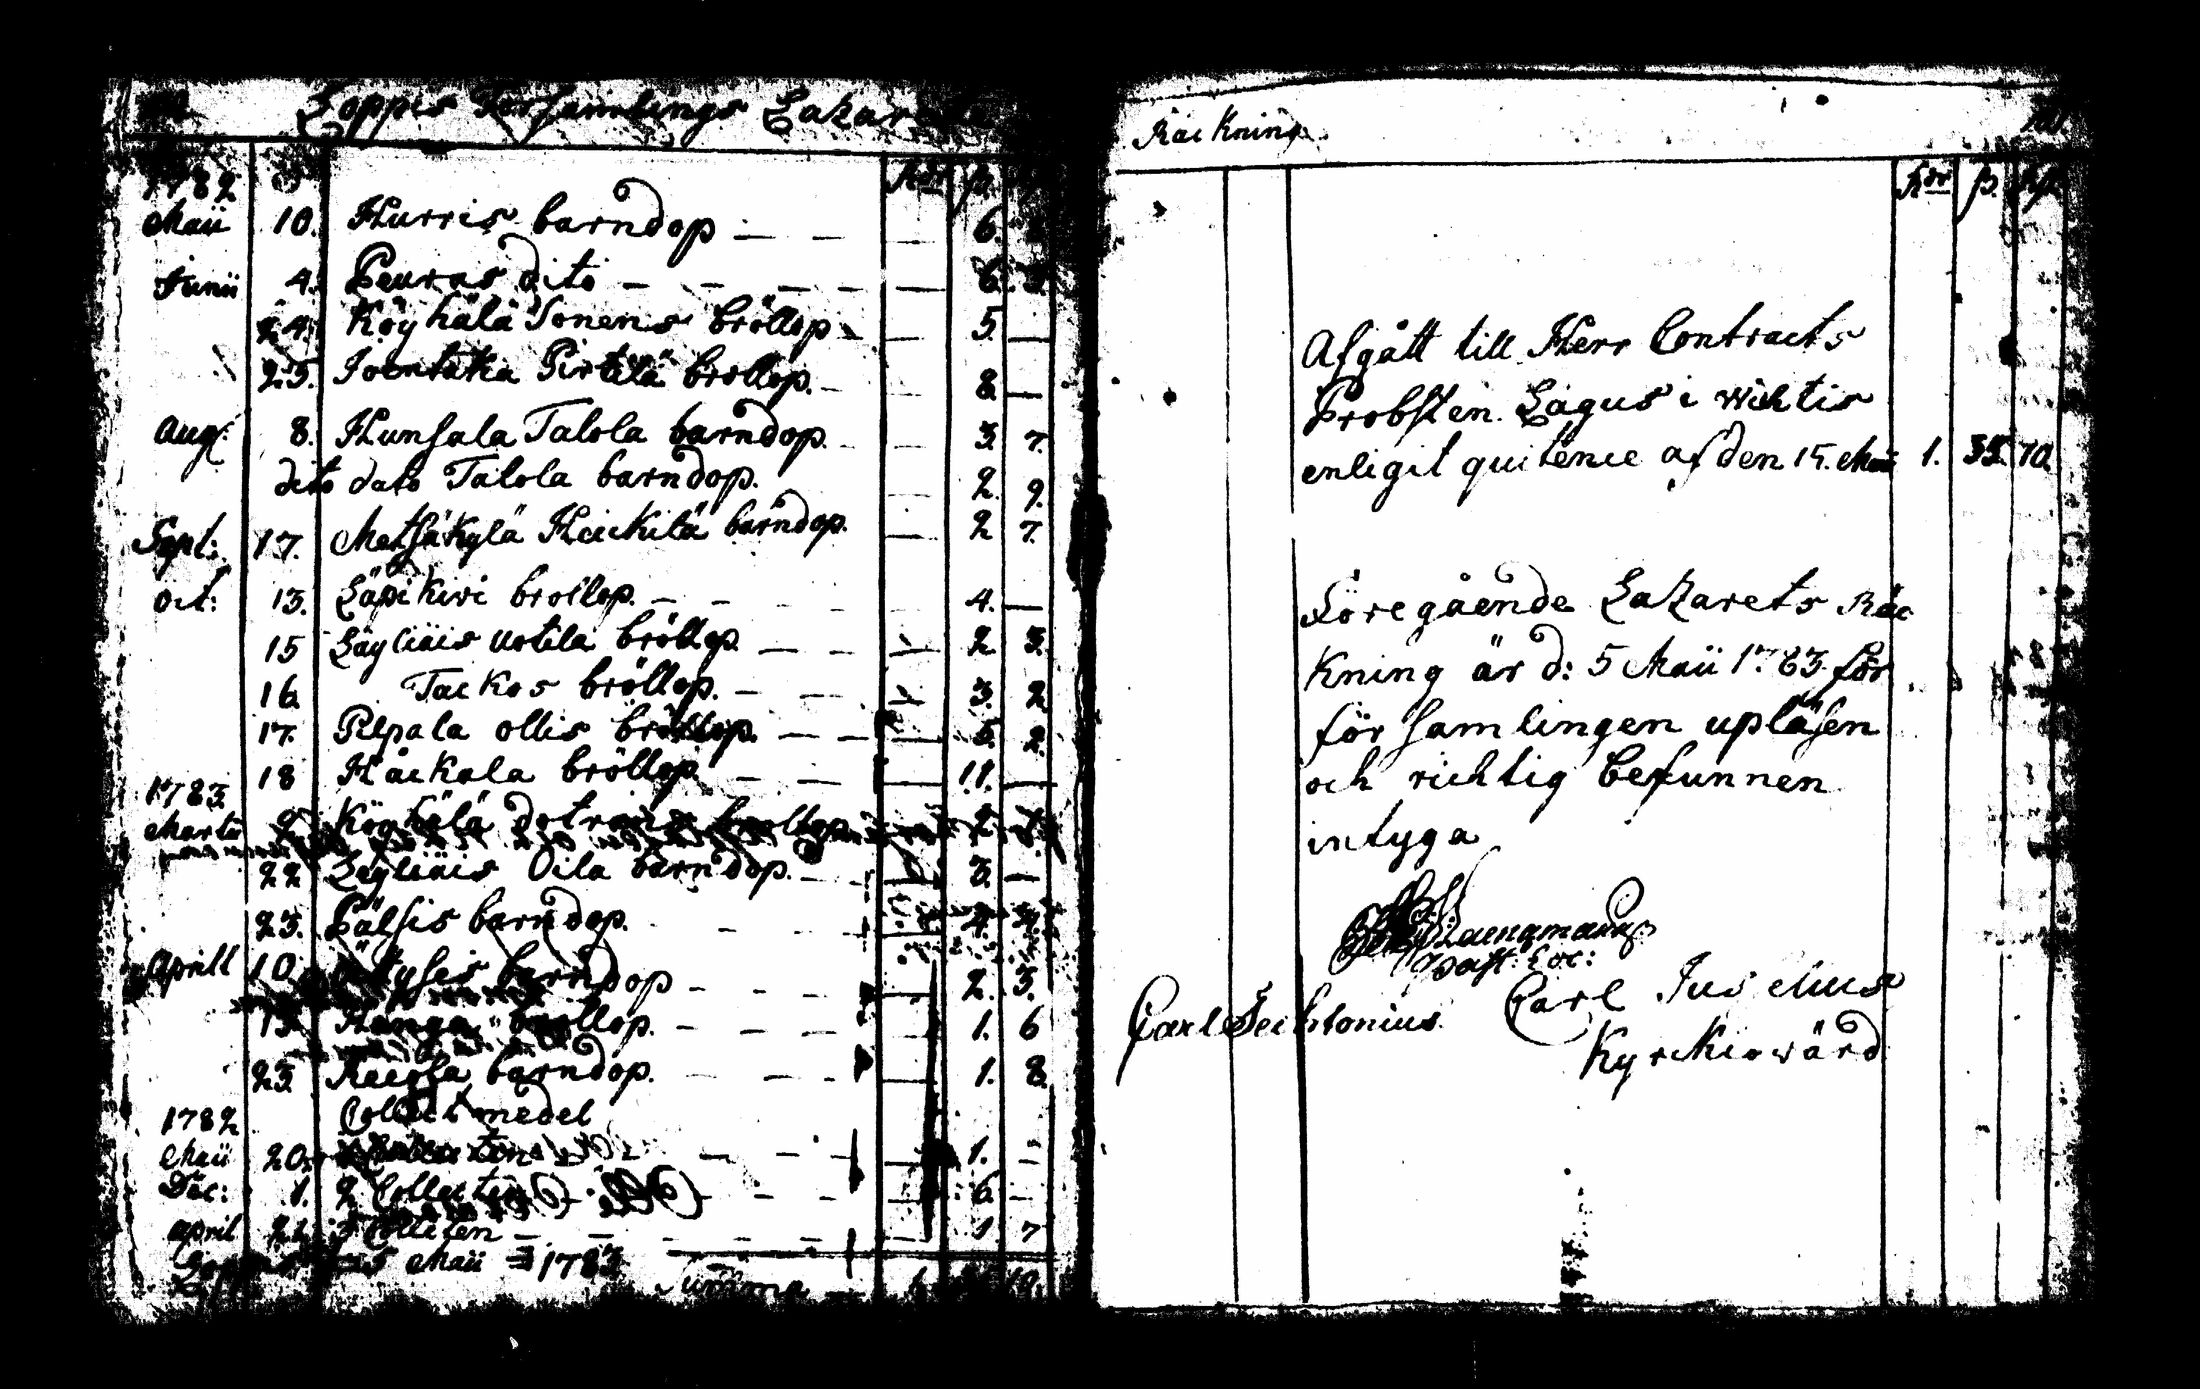 Loppis Församlings Lazarets
1782 Rdr ß.
Maii 10. Hurris barndop — — — 6.
Junii 4. Peuras dito — — — — — 6. 3.
24. Köyhälä Sonens bröllop — — 5. —
25. Joentaka Pirtilä bröllop. — 8. —
Aug: 8. Hunsala Talola barndop. — — 3. 7.
dito dato Talola barndop. — 2. 9.
Sept: 17. Metsäkylä Heickilä barndop. — 2 7.
Oct: 13. Läpikivi bröllop. — — — — 4. —
15 Läyliäis Uotila bröllop — — — 2 3.
16. Tackos bröllop. — — — 3. 2
17. Pilpala Ollis bröllop. — — — 5. 2.
18 Håckala bröllop — — — 11. —
1783
Martii 9 Köyhälä dotrens bröllop
22 Läyliäis Oila barndop. — — — 3. —
23. Pälsis barndop. — — — 4.
Aprill 10. barndop — — — — 2. 3.
Hanga bröllop. — — — — 1. 6
23. barndop. — — — — 1. 8.
1782 Collect medel
Maii 20. — — — 1. —
Dec: 1. 2 Collecter — — — 6. —
April 3 Collecten — — — — — 1. 7
5 Maii 1783 Summa
Räckning
Rdr ß.
Afgått till Herr Contracts
Probsten Lagus i Wichtis
enligit quitence af den 15. Maii 1. 35. 10.
Föregående Lazarets Räc
kning är d: 5 Maii 1783 för
församlingen upläsen
och richtig befunnen
intyga
Past: Loc:
Carl Techtonius. Carl Juselius
Kyrckiowärd